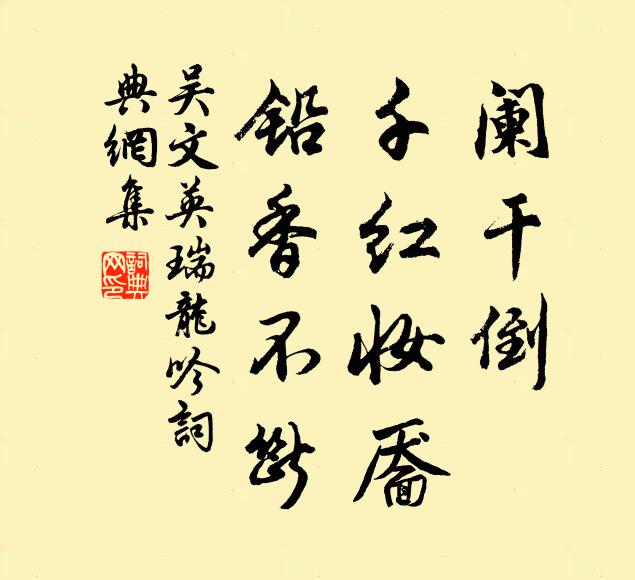 阑干倒
千红妆靥
铅香不断
吴文英瑞龍吟詞
典網集
詞典网印